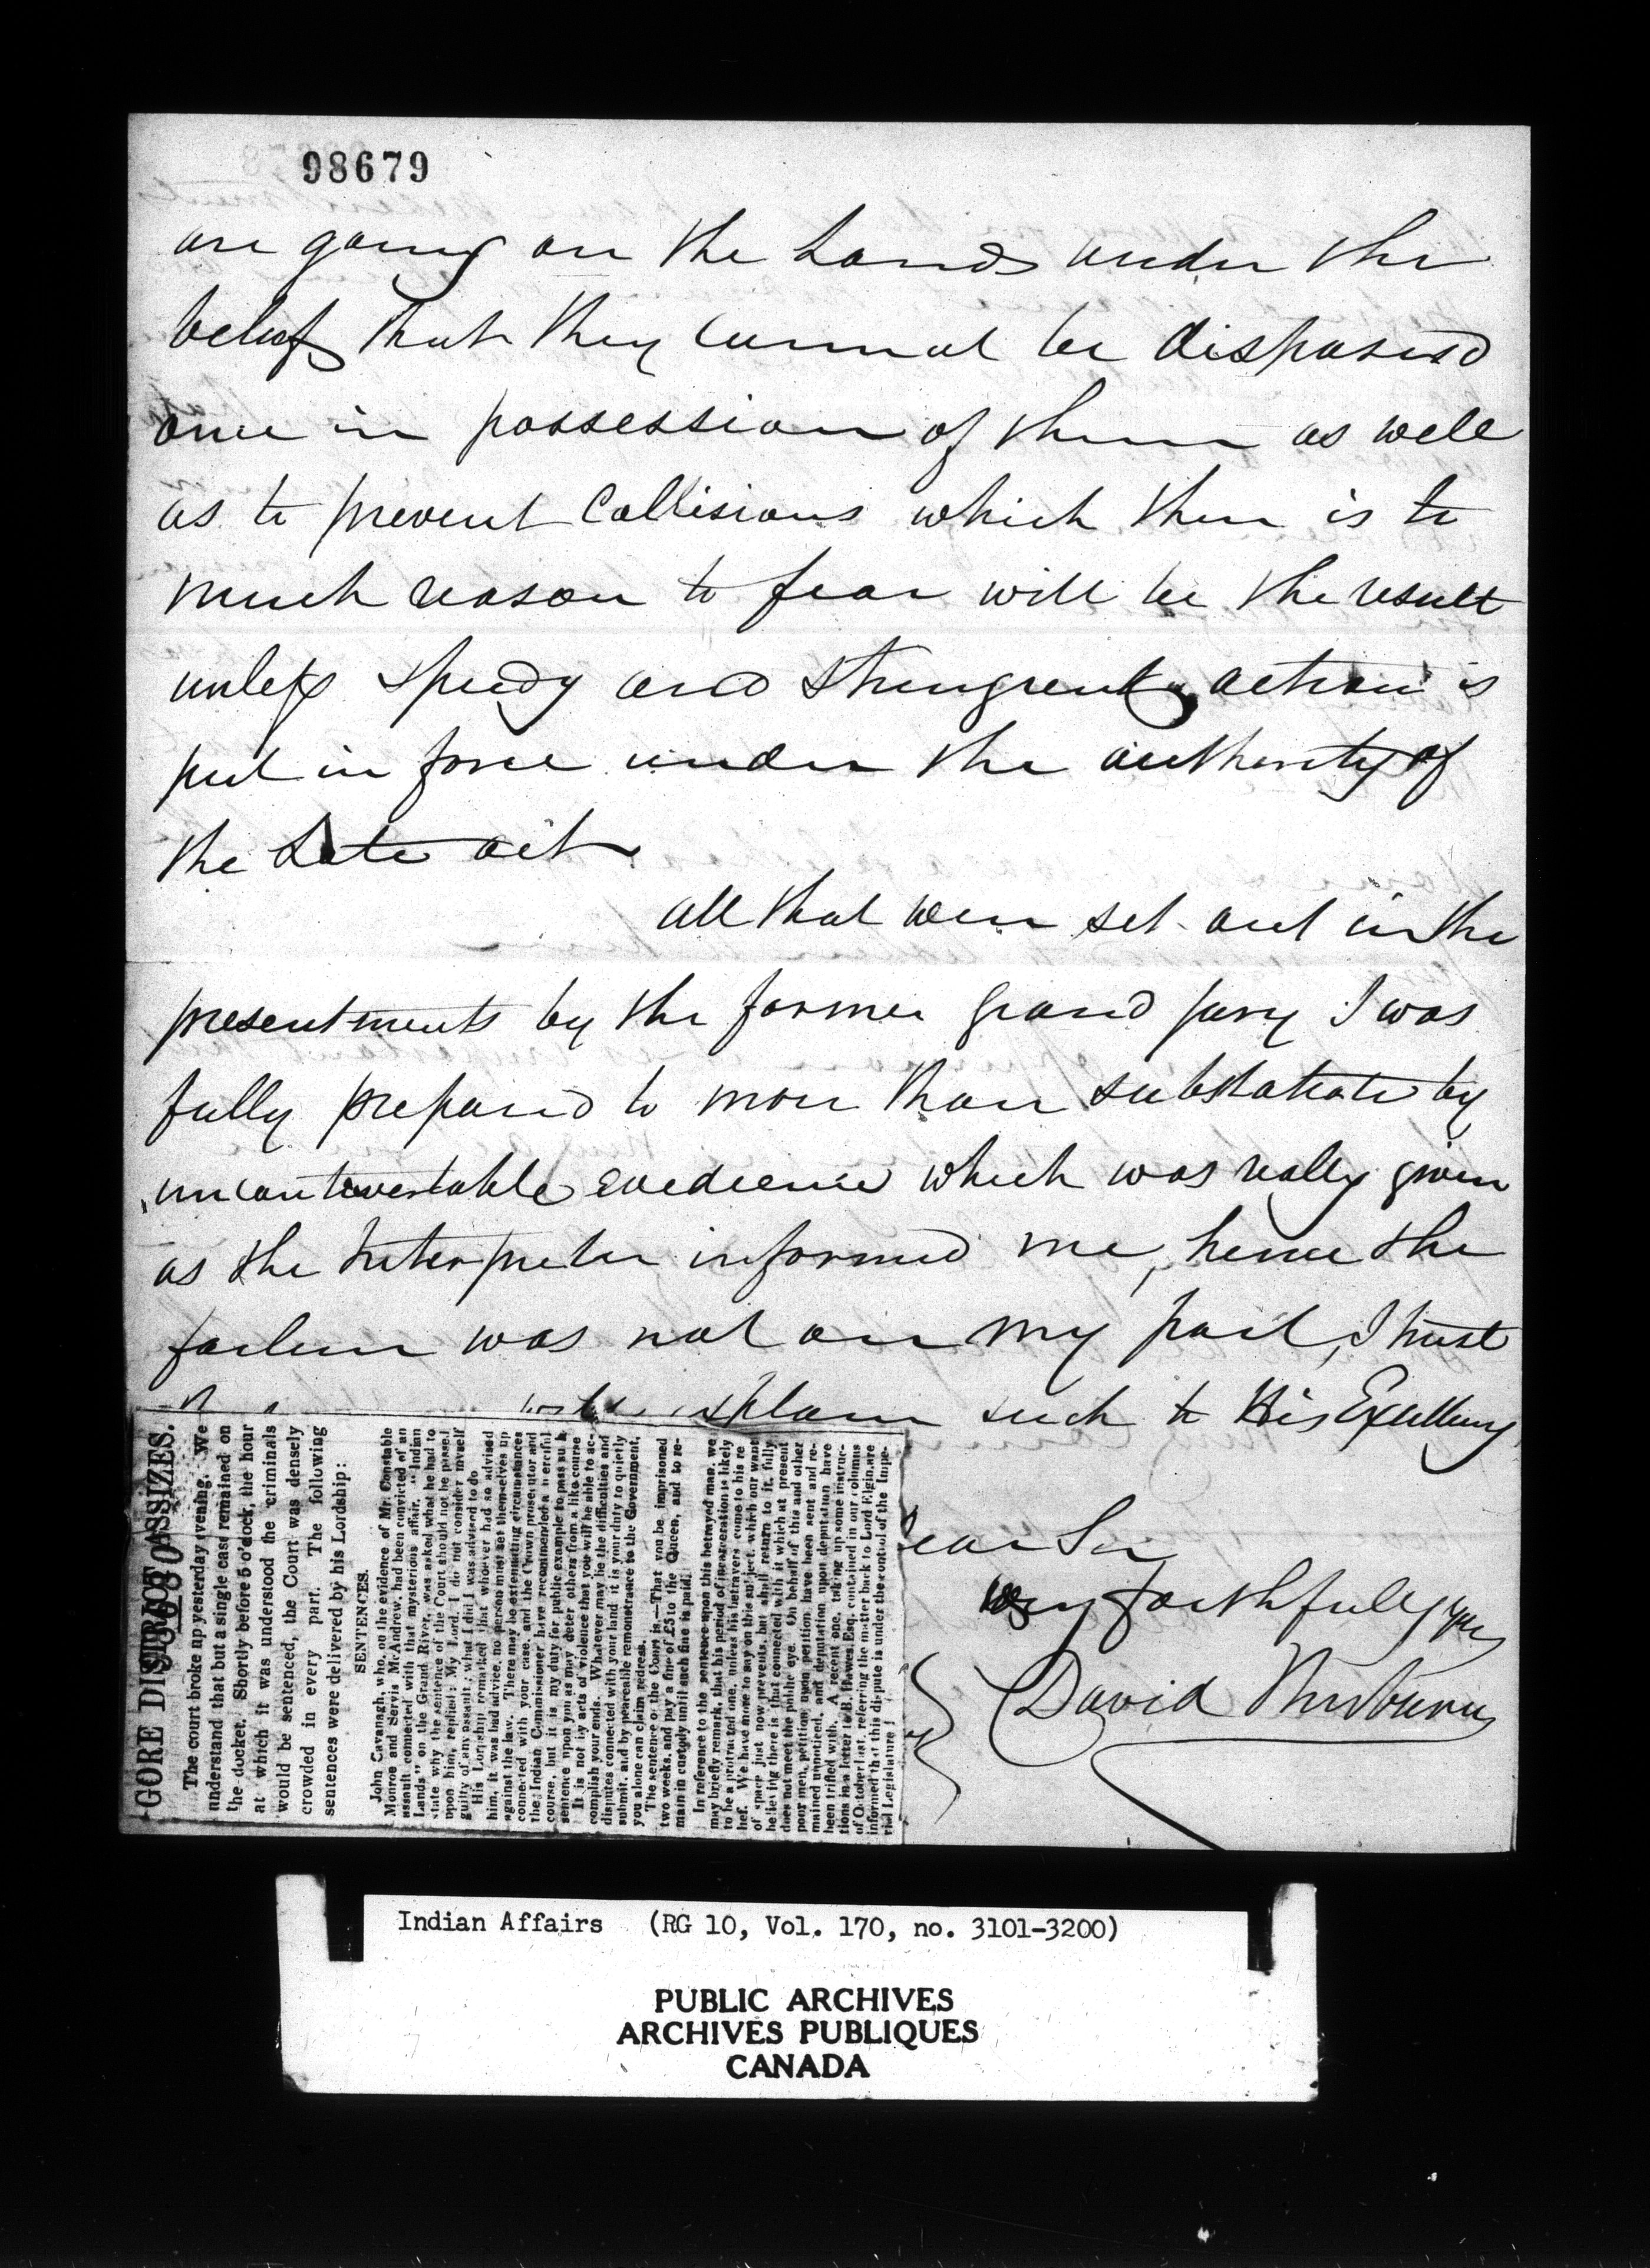 98679
are going on the Lands under the
belief that they cannot be disposesd
once in possession of them as well
as to prevent Collisions which there is to
much reason to fear will be the result
unless speedy and stringent action is
put in force under the authority of
the Late act
all that were set out in the
presentments by the former grand jury I was
fully prepared to more than substatiate by
uncontrovertable evedience which was really given
as the Interpreter informed me, hence the
failure was not on my part, I trust
explain such to His Excellency
Dear Sir
very faithfully yrs
David Thorburn
GORE DISTRICT ASSIZES.
The court broke up yesterday evening. We
understand that but a single case remained on
the docket. Shortly before 5 o'clock, the hour
at which it was understood the criminals
would be sentenced, the Court was densely
crowded in every part. The following
sentences were delivered by his Lordship:
SENTENCES.
John Cavanagh, who, on the evidence of Mr. Constable
Monroe and Servis McAndrew, had been convicted of an
assault connected with that mysterious affair, "Indian
Lands" on the Grand River, was asked what he had to
state why the sentence of the Court should not be passed
upon him, replied: My Lord, I do not consider myself
guilty of any assault; what I did I was advised to do
His Lordship remarked that whoever had so advised
him, it was bad advice, no person must set themselves up
against the law. There may be extenuating circumstances
connected with your case, and the Crown prosecutor and
the Indian Comissioner have recommended a merciful
course, but it is my duty for public example to pass such
sentence upon you as may deter others from a like course
It is not by acts of violence that you will be able to ac-
complish your ends. Whatever may be the difficulties and
disputes connected with your land it is your duty to quietly
submit, and by peaceable remonstrance to the Government,
you alone can claim redress.
The sentence of the Court is—That you be imprisoned
two weeks, and pay a fine of £5 to the Queen, and to re-
main in custody until such fine is paid.
In reference to the sentence upon this betrayed man, we
may briefly remark, that his period of incarceration is likely
to be a protracted one, unless his betrayers come to his re
lief. We have more to say on this subject, which our want
of space just now prevents, but shall return to it, fully
believing there is that connected with it which at present
does not meet the public eye. On behalf of this and other
poor men, petition upon petition have been sent and re-
mained unnoticed, and deputation upon deputation have
been trifled with. A recent one, taking up some instruc-
tions in a letter to B. Hawes, Esq. contained in our columns
of October last, referring the matter back to Lord Elgin, are
informed that this dispute is under the control of the Impe-
rial Legislature!
Indian Affairs (RG 10, Vol. 170, no. 3101-3200)
PUBLIC ARCHIVES
ARCHIVES PUBLIQUES
CANADA